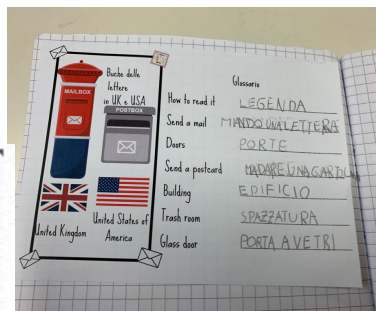 Buche delle
lettere
in UK e USA
MAILBOX
POSTBOX
United Kingdom
United States of
America
Glossario
How to read it LEGENDA
Send a mail MANDO UNA LETTERA
Doors PORTE
Send a postcard MADARE UNA
Building EDIFICIO
Trash room SPAZZATURA
Glass door PORTA A VETRI